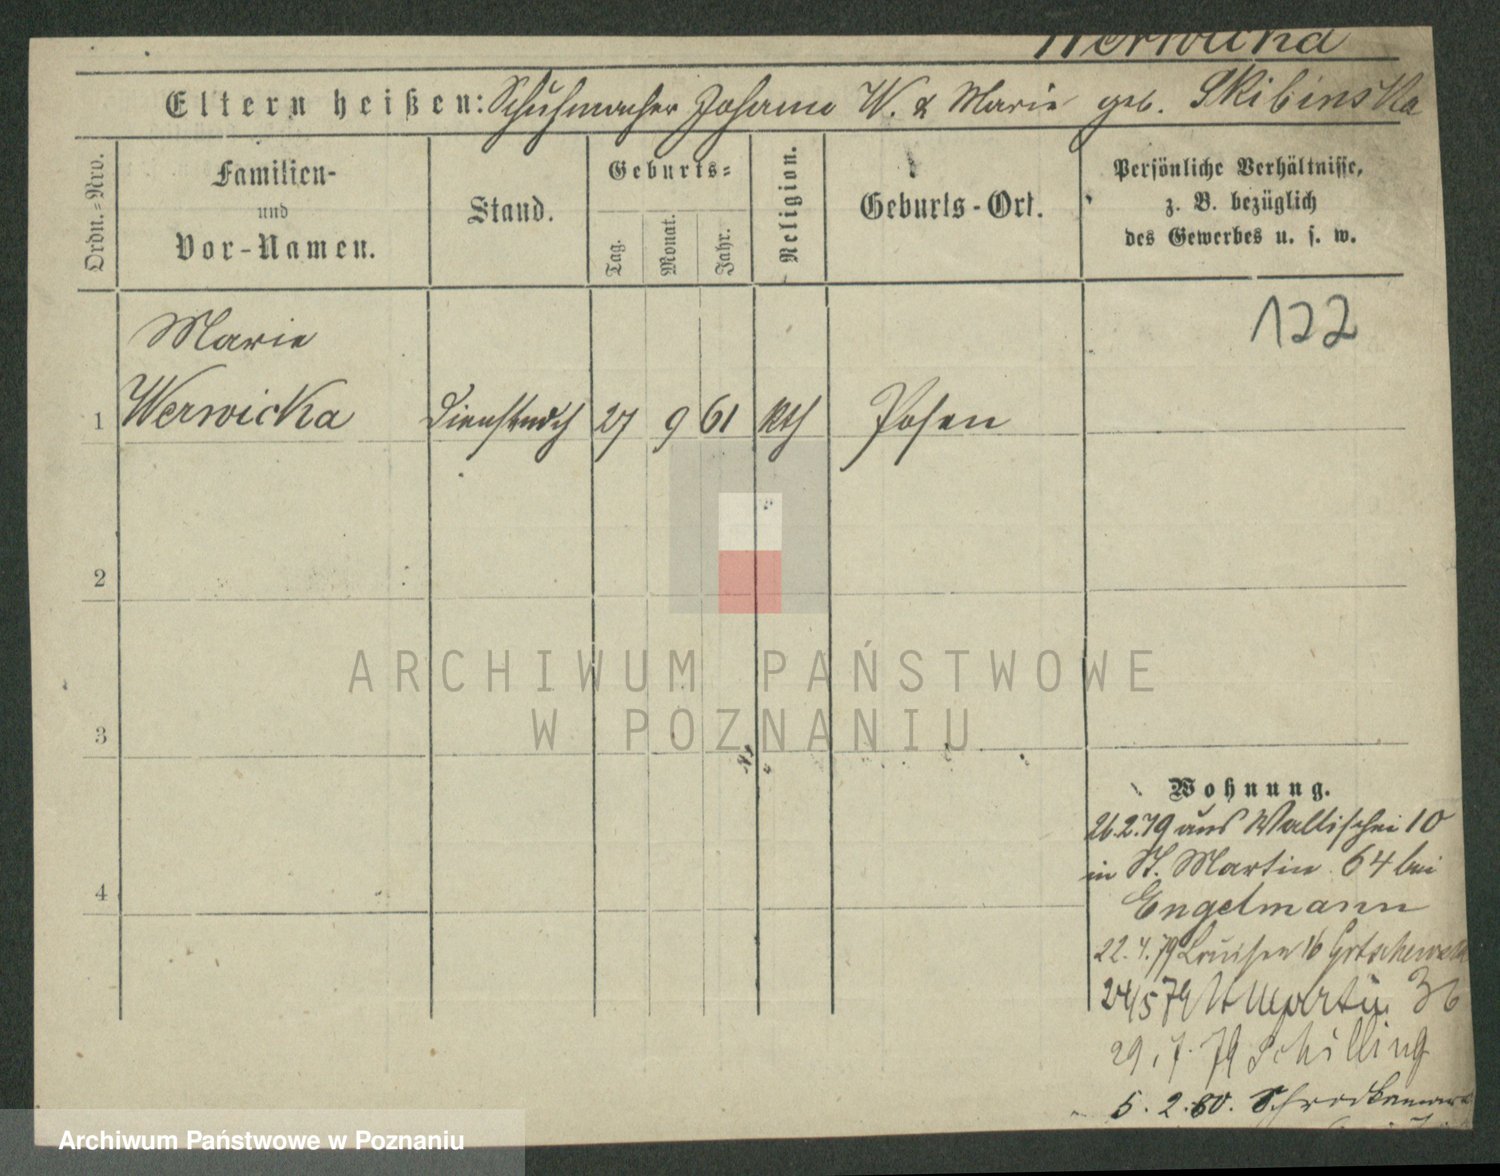 Werwicka
Eltern heißen: Schuhmacher Johann W. & Marie geb. Skibinska
Ordn.=Nro.
Familien-
und
Vor-Namen.
Stand.
Geburts=
Tag.
Monat.
Jahr.
Religion.
Geburts-Ort.
Persönliche Verhältnisse,
z. B. bezüglich
des Gewerbes u. s. w.
122
Marie
1 Werwicka Dienstmdch 27 9 61 kth Posen
2
3
4
Wohnung.
26.2.79 aus Wallischei 10
in St. Martin 64 bei
Engelmann
22.4.79 Louisen 16
24/5 79 St Martin 36
29.7.79 Schilling
5.2.80.
ARCHIWUM PAŃSTWOWE
W POZNANIU
Archiwum Państwowe w Poznaniu